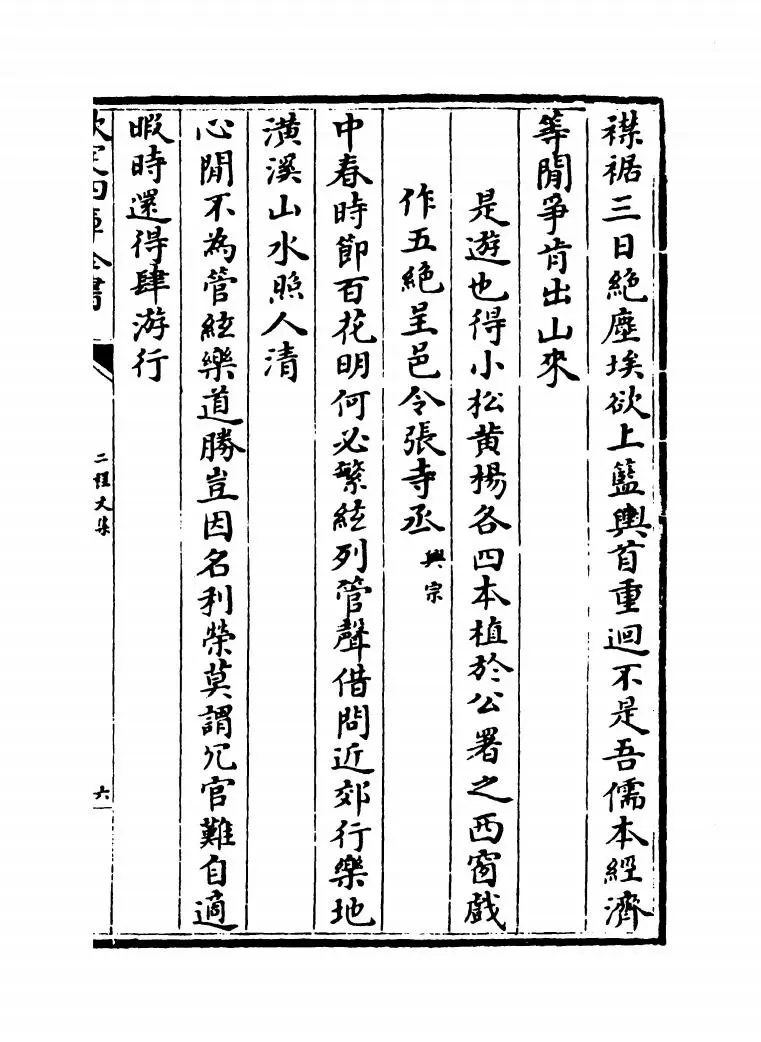 襟裾三日絶塵埃欲上籃輿首重迴不是吾儒本經濟
等閒爭肯出山來
是遊也得小松黄楊各四本植於公署之西窗戲
作五絶呈邑令張寺丞興宗
中春時節百花明何必繁絃列管聲借問近郊行樂地
潢溪山水照人清
心閒不為管絃樂道勝豈因名利榮莫謂冗官難自適
暇時還得肆游行
欽定四庫全書
二程文集
六